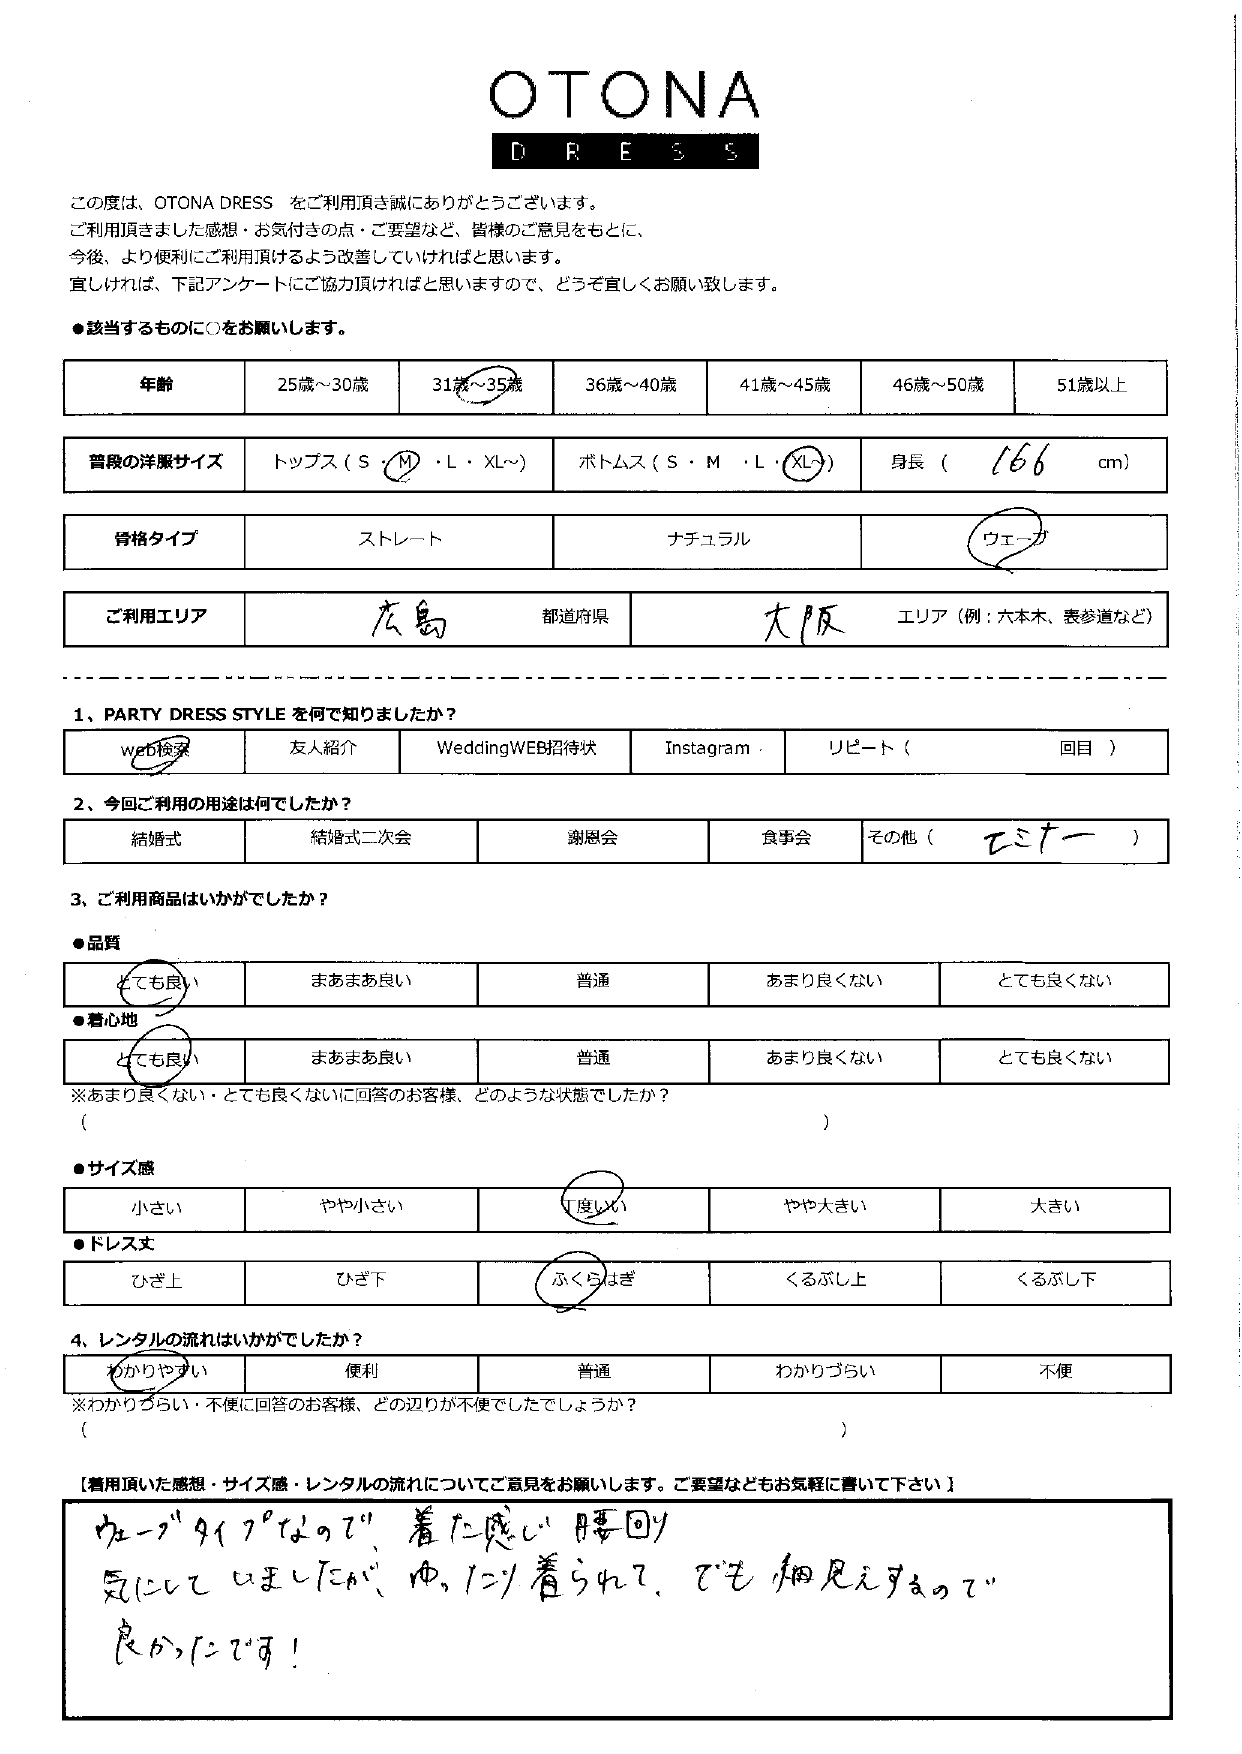 OTONA
DRESS
この度は、OTONA DRESS をご利用頂き誠にありがとうございます。
ご利用頂きました感想・お気付きの点・ご要望など、皆様のご意見をもとに、
今後、より便利にご利用頂けるよう改善していければと思います。
宜しければ、下記アンケートにご協力頂ければと思いますので、どうぞ宜しくお願い致します。
●該当するものに○をお願いします。
年齢 25歳～30歳 31歳～35歳 36歳～40歳 41歳～45歳 46歳～50歳 51歳以上
普段の洋服サイズ トップス ( S ・ M ・L ・ XL~) ボトムス ( S ・ M ・L ・ XL~) 身長 ( 166 cm)
骨格タイプ ストレート ナチュラル ウェーブ
ご利用エリア 広島 都道府県 大阪 エリア (例：六本木、表参道など)
1、PARTY DRESS STYLE を何で知りましたか？
web検索 友人紹介 WeddingWEB招待状 Instagram リピート ( 回目 )
2、今回ご利用の用途は何でしたか？
結婚式 結婚式二次会 謝恩会 食事会 その他 ( セミナー )
3、ご利用商品はいかがでしたか？
●品質
とても良い まあまあ良い 普通 あまり良くない とても良くない
●着心地
とても良い まあまあ良い 普通 あまり良くない とても良くない
※あまり良くない・とても良くないに回答のお客様、どのような状態でしたか？
( )
●サイズ感
小さい やや小さい 丁度いい やや大きい 大きい
●ドレス丈
ひざ上 ひざ下 ふくらはぎ くるぶし上 くるぶし下
4、レンタルの流れはいかがでしたか？
わかりやすい 便利 普通 わかりづらい 不便
※わかりづらい・不便に回答のお客様、どの辺りが不便でしたでしょうか？
( )
【着用頂いた感想・サイズ感・レンタルの流れについてご意見をお願いします。ご要望などもお気軽に書いて下さい】
ウェーブタイプなので、着た感じ 腰回り
気にしていましたが、ゆったり着られて、でも細見えするので
良かったです！